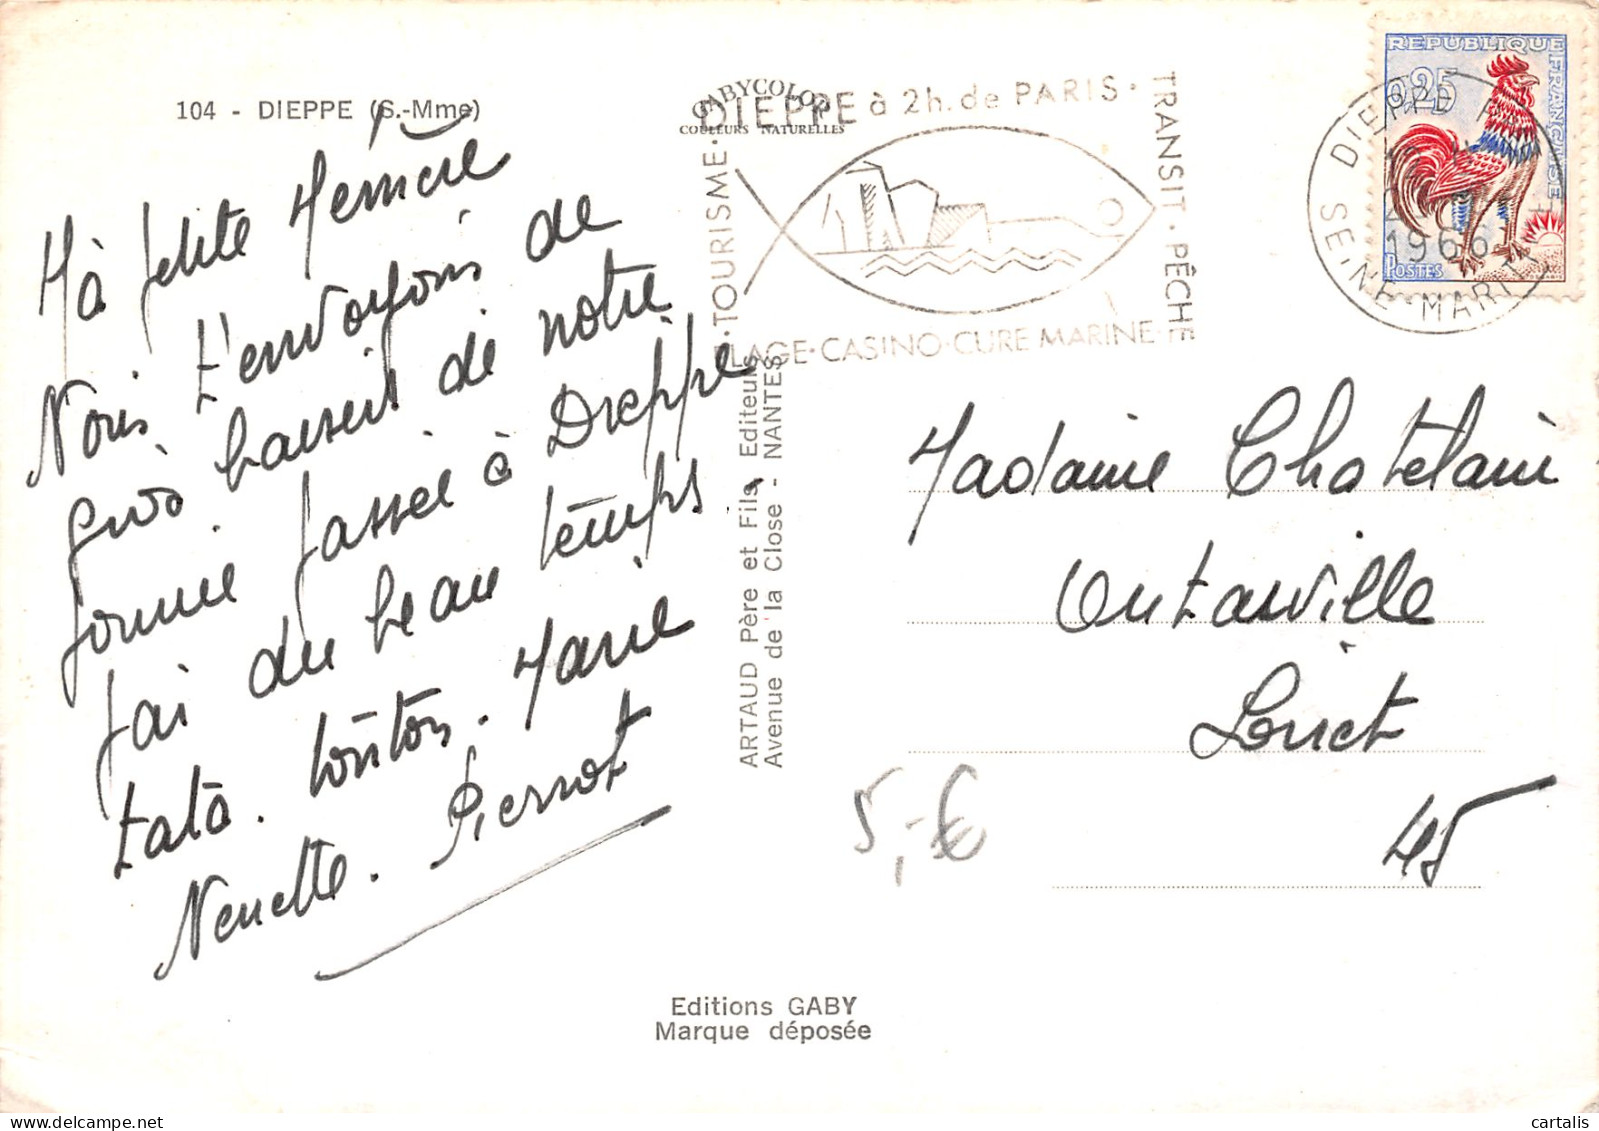 104 - DIEPPE (S.-Mme)
Mà petite Mémère
Nous t'envoyons de
gros baisers de notre
journée passée à Dieppe
par du beau temps
tata. tonton. Marie
Nenette. Pierrot
GABYCOLOR
COULEURS NATURELLES
DIEPPE à 2h. de PARIS ·
TRANSIT · PÊCHE
· TOURISME ·
PLAGE · CASINO · CURE MARINE ·
ARTAUD Père et Fils, Editeurs
Avenue de la Close - NANTES
REPUBLIQUE
FRANÇAISE
0,25
POSTES
DIEPPE
1966
SEINE-MARITIME
Madame Chatelain
Outarville
Loiret
45
5,-€
Editions GABY
Marque déposée
cartalis